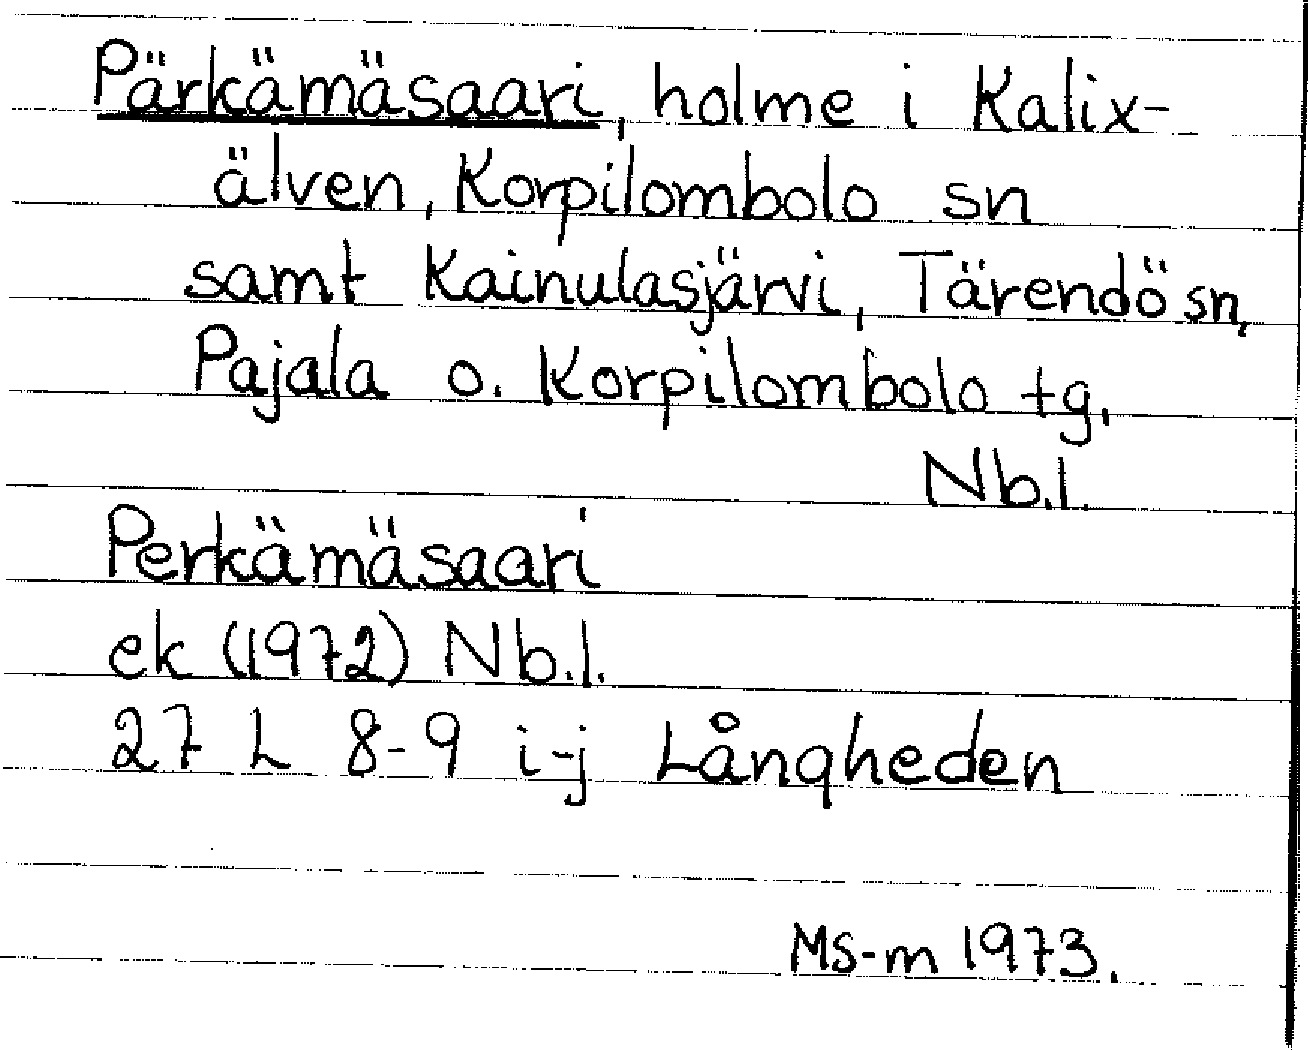 Pärkämäsaari, holme i Kalix-
älven, Korpilombolo sn
samt Kainulasjärvi, Tärendö sn,
Pajala o. Korpilombolo tg.
Nb.l.
Perkämäsaari
ek (1972) Nb.l.
27 L 8-9 i-j Långheden
MS-m 1973.